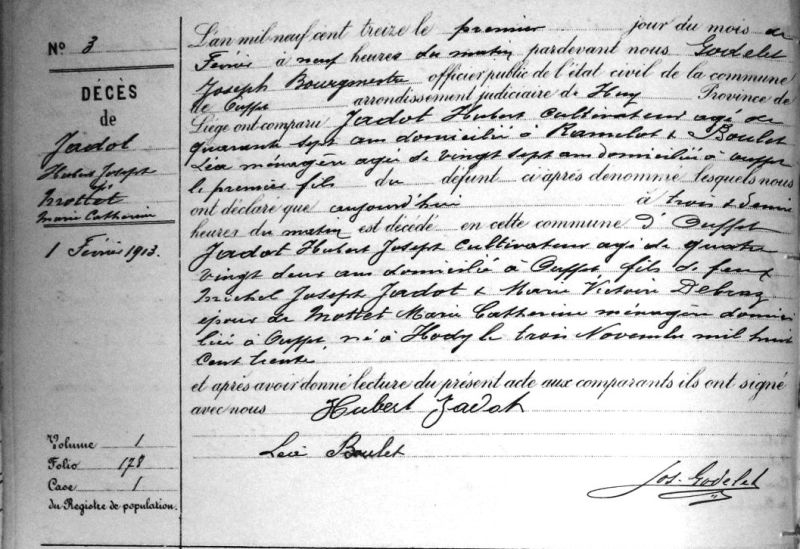 N° 3
DÉCÈS
de
Jadot
Hubert Joseph
ép
Mottet
Marie Catherine
1 Février 1913.
Volume 1
Folio 178
Case 1
du Registre de population.
L'an mil neuf cent treize le premier jour du mois de
Février à neuf heures du matin pardevant nous Godelet
Joseph Bourgmestre officier public de l'état civil de la commune
de Ouffet arrondissement judiciaire de Huy Province de
Liége ont comparu Jadot Hubert cultivateur agé de
quarante sept ans domicilié à Ramelot & Boulet
Léa ménagère agée de vingt sept ans domiciliée à Ouffet
le premier fils du défunt ci après dénommé lesquels nous
ont déclaré que aujourd'hui à trois & demie
heures du matin est décédé en cette commune d'Ouffet
Jadot Hubert Joseph cultivateur agé de quatre
vingt deux ans domicilié à Ouffet fils de feux
Michel Joseph Jadot & Marie Victoire
époux de Mottet Marie Catherine ménagère domici
liée à Ouffet, né à Hody le trois Novembre mil huit
cent trente.
et après avoir donné lecture du présent acte aux comparants ils ont signé
avec nous Hubert Jadot
Léa Boulet
Jos. Godelet